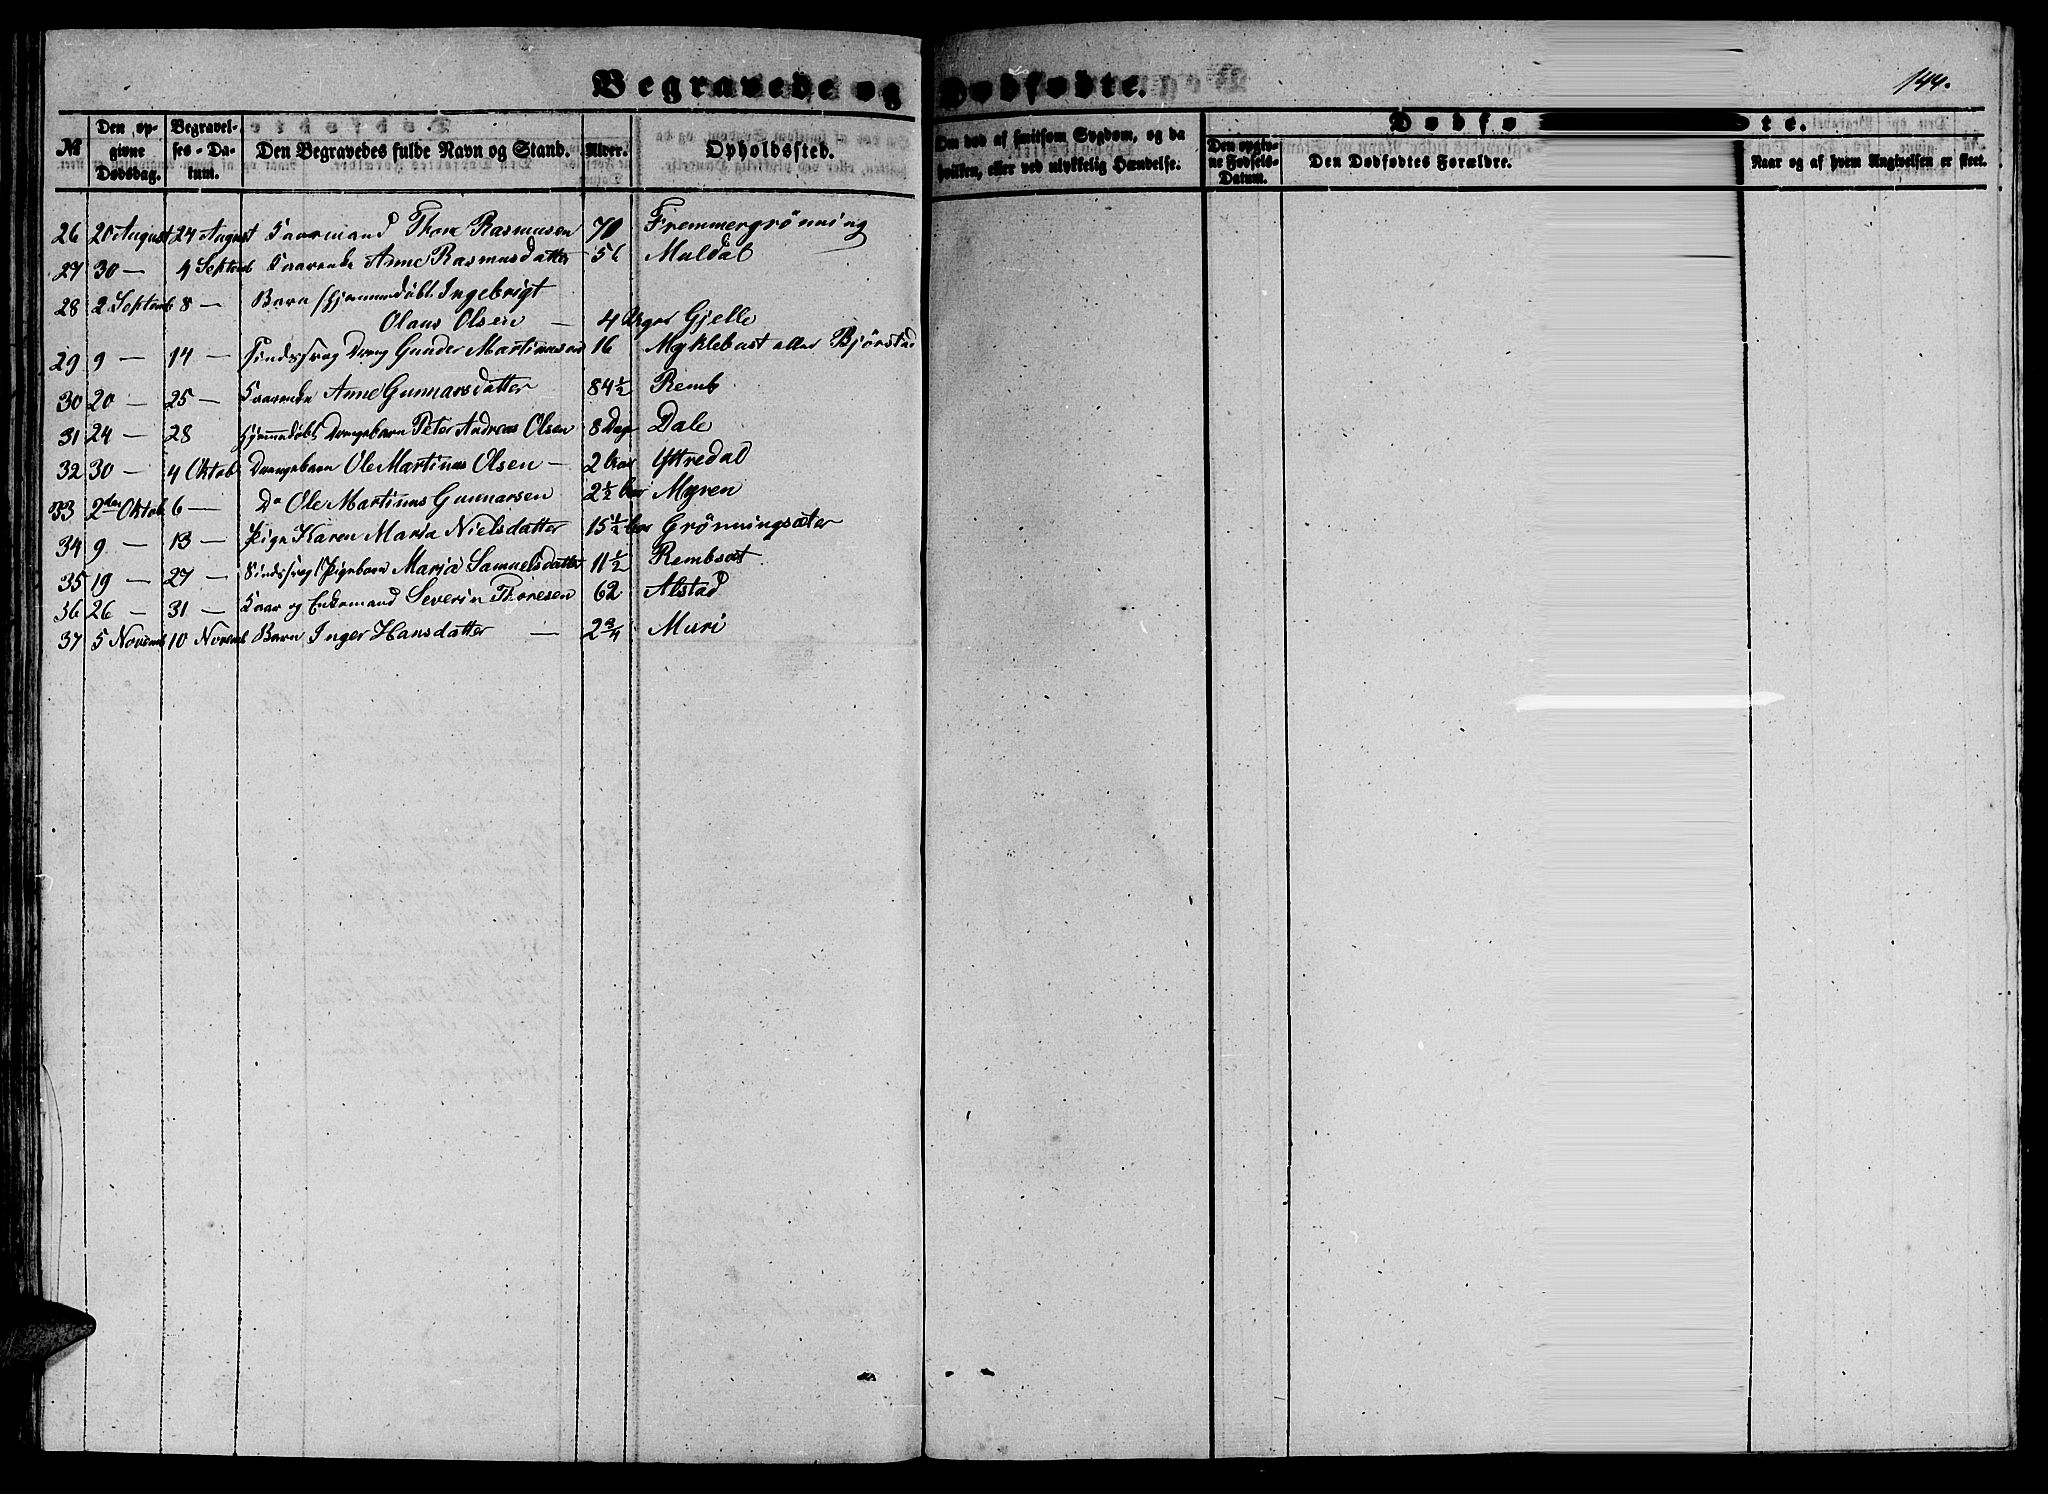 Begravede og Dødfødte.
144.
№
Den opgivne Dødsdag.
Begravelses-Datum.
Den Begravedes fulde Navn og Stand.
Alder.
Opholdssted.
Om død af smitsom Sygdom, og da hvilken, eller ved ulykkelig Hændelse.
Dødfø te.
Den opgivne Fødsels-Datum.
Den Dødfødtes Forældre.
Naar og af hvem Angivelsen er skeet.
26 20 August 24 August Kaarmand Thore Rasmusen 70 Fremmergrönning
27 30 — 4 Septemb Kaarenke Anne Rasmusdatter 56 Muldal
28 2 Septemb 8 — Barn hjemmedöbt Ingebrigt
Olaus Olsen — 4 Uger Gjelle
29 9 — 14 — Sindssvag Dreng Gunder Martinusen 16 Myklebust eller Bjørstad
30 20 — 25 — Kaarenke Anne Gunnarsdatter 84½ Remb
31 24 — 28 hjemmedøbt Drengebarn Peter Andreas Olsen 8 Dage Dale
32 30 — 4 Oktob Drengebarn Ole Martinus Olsen — 2 Yttredal
33 2den Oktob 6 — Do Ole Martinus Gunnarsen 2½ Myren
34 9 — 13 — Pige Karen Maria Nielsdatter 15½ Grönningsæter
35 19 — 27 — Sindssvag Pigebarn Maria Samuelsdatter 11½ Rembsæt
36 26 — 31 — Kaar og Enkemand Severin Thoresen 62 Alstad
37 5 Novemb 10 Novemb Barn Inger Hansdatter — 2¾ Muri